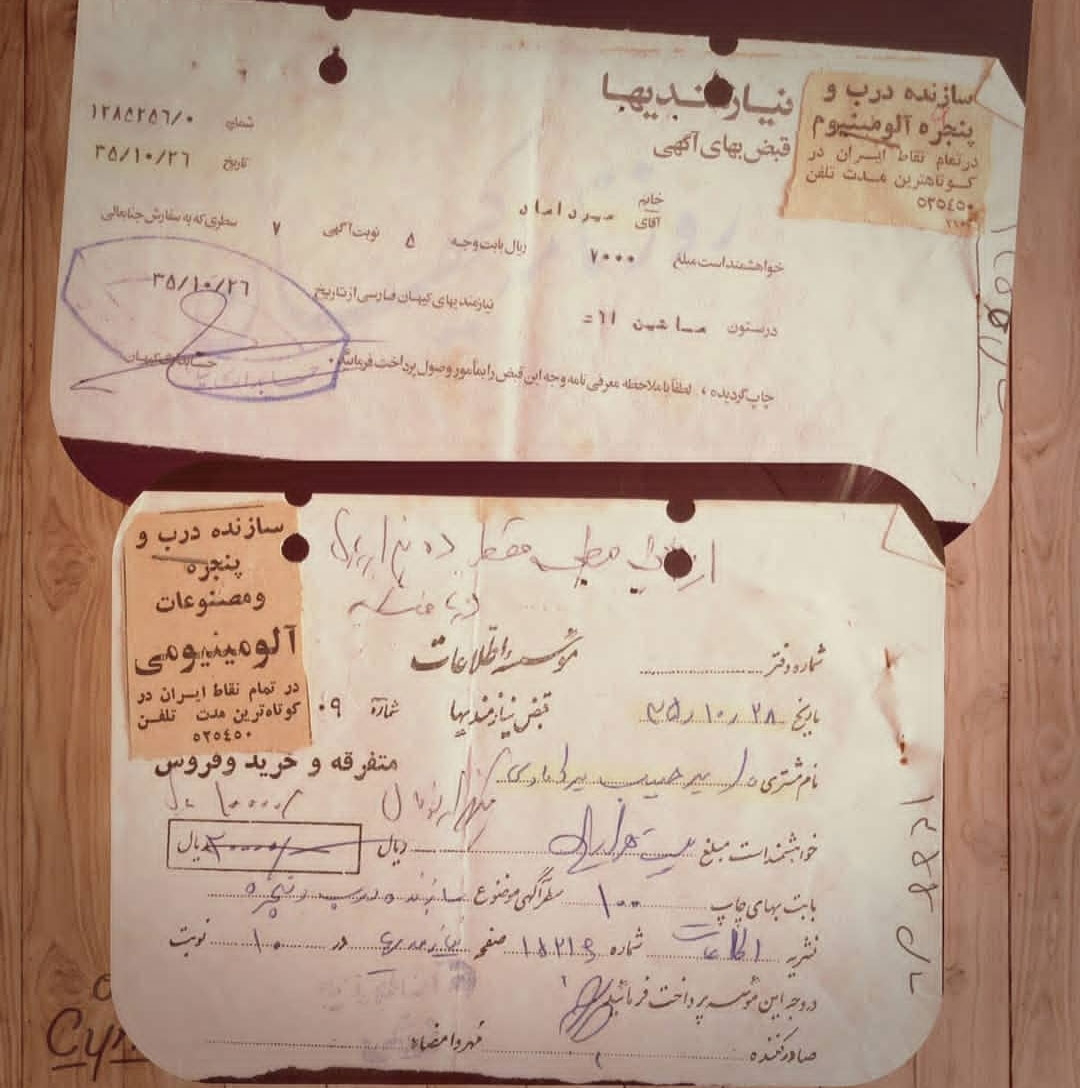 نیازمندیها
قبض بهای آگهی
شماره ۱۲۸۵۲۵۶/۰
تاریخ ۳۵/۱۰/۲۶
سازنده درب و
پنجره آلومینیوم
در تمام نقاط ایران در
کوتاهترین مدت تلفن
۵۲۵۴۵۰
خانم
آقای میرداماد
خواهشمند است مبلغ ۷۰۰۰ ریال بابت وجه ۵ نوبت آگهی ۷ سطری که به سفارش جنابعالی
درستون ماشین ۱۱= نیازمندیهای کیهان فارسی از تاریخ ۳۵/۱۰/۲۶
چاپ گردیده ، لطفاً با ملاحظه معرفی نامه وجه این قبض را بمأمور وصول پرداخت فرمائید .
حسابداری کیهان
سازنده درب و
پنجره
ومصنوعات
آلومینیومی
در تمام نقاط ایران در
کوتاه‌ترین مدت تلفن
۵۲۵۴۵۰
مؤسسه اطلاعات
شماره دفتر
قبض نیازمندیها
شماره ۰۹
تاریخ ۳۵/۱۰/۲۸
متفرقه و خرید وفروس
نام مشتری
۱۰۰۰۰/
خواهشمند است مبلغ بیست هزار ریال ریال ۲۰۰۰۰/ ریال
بابت بهای چاپ ۱۰۰ سطر آگهی موضوع سازنده درب و پنجره
نشریه اطلاعات شماره ۱۵۲۱۶ صفحه نیازمندیها در ۱۰ نوبت
در وجه این مؤسسه پرداخت فرمائید
صادر کننده
مهر و امضاء